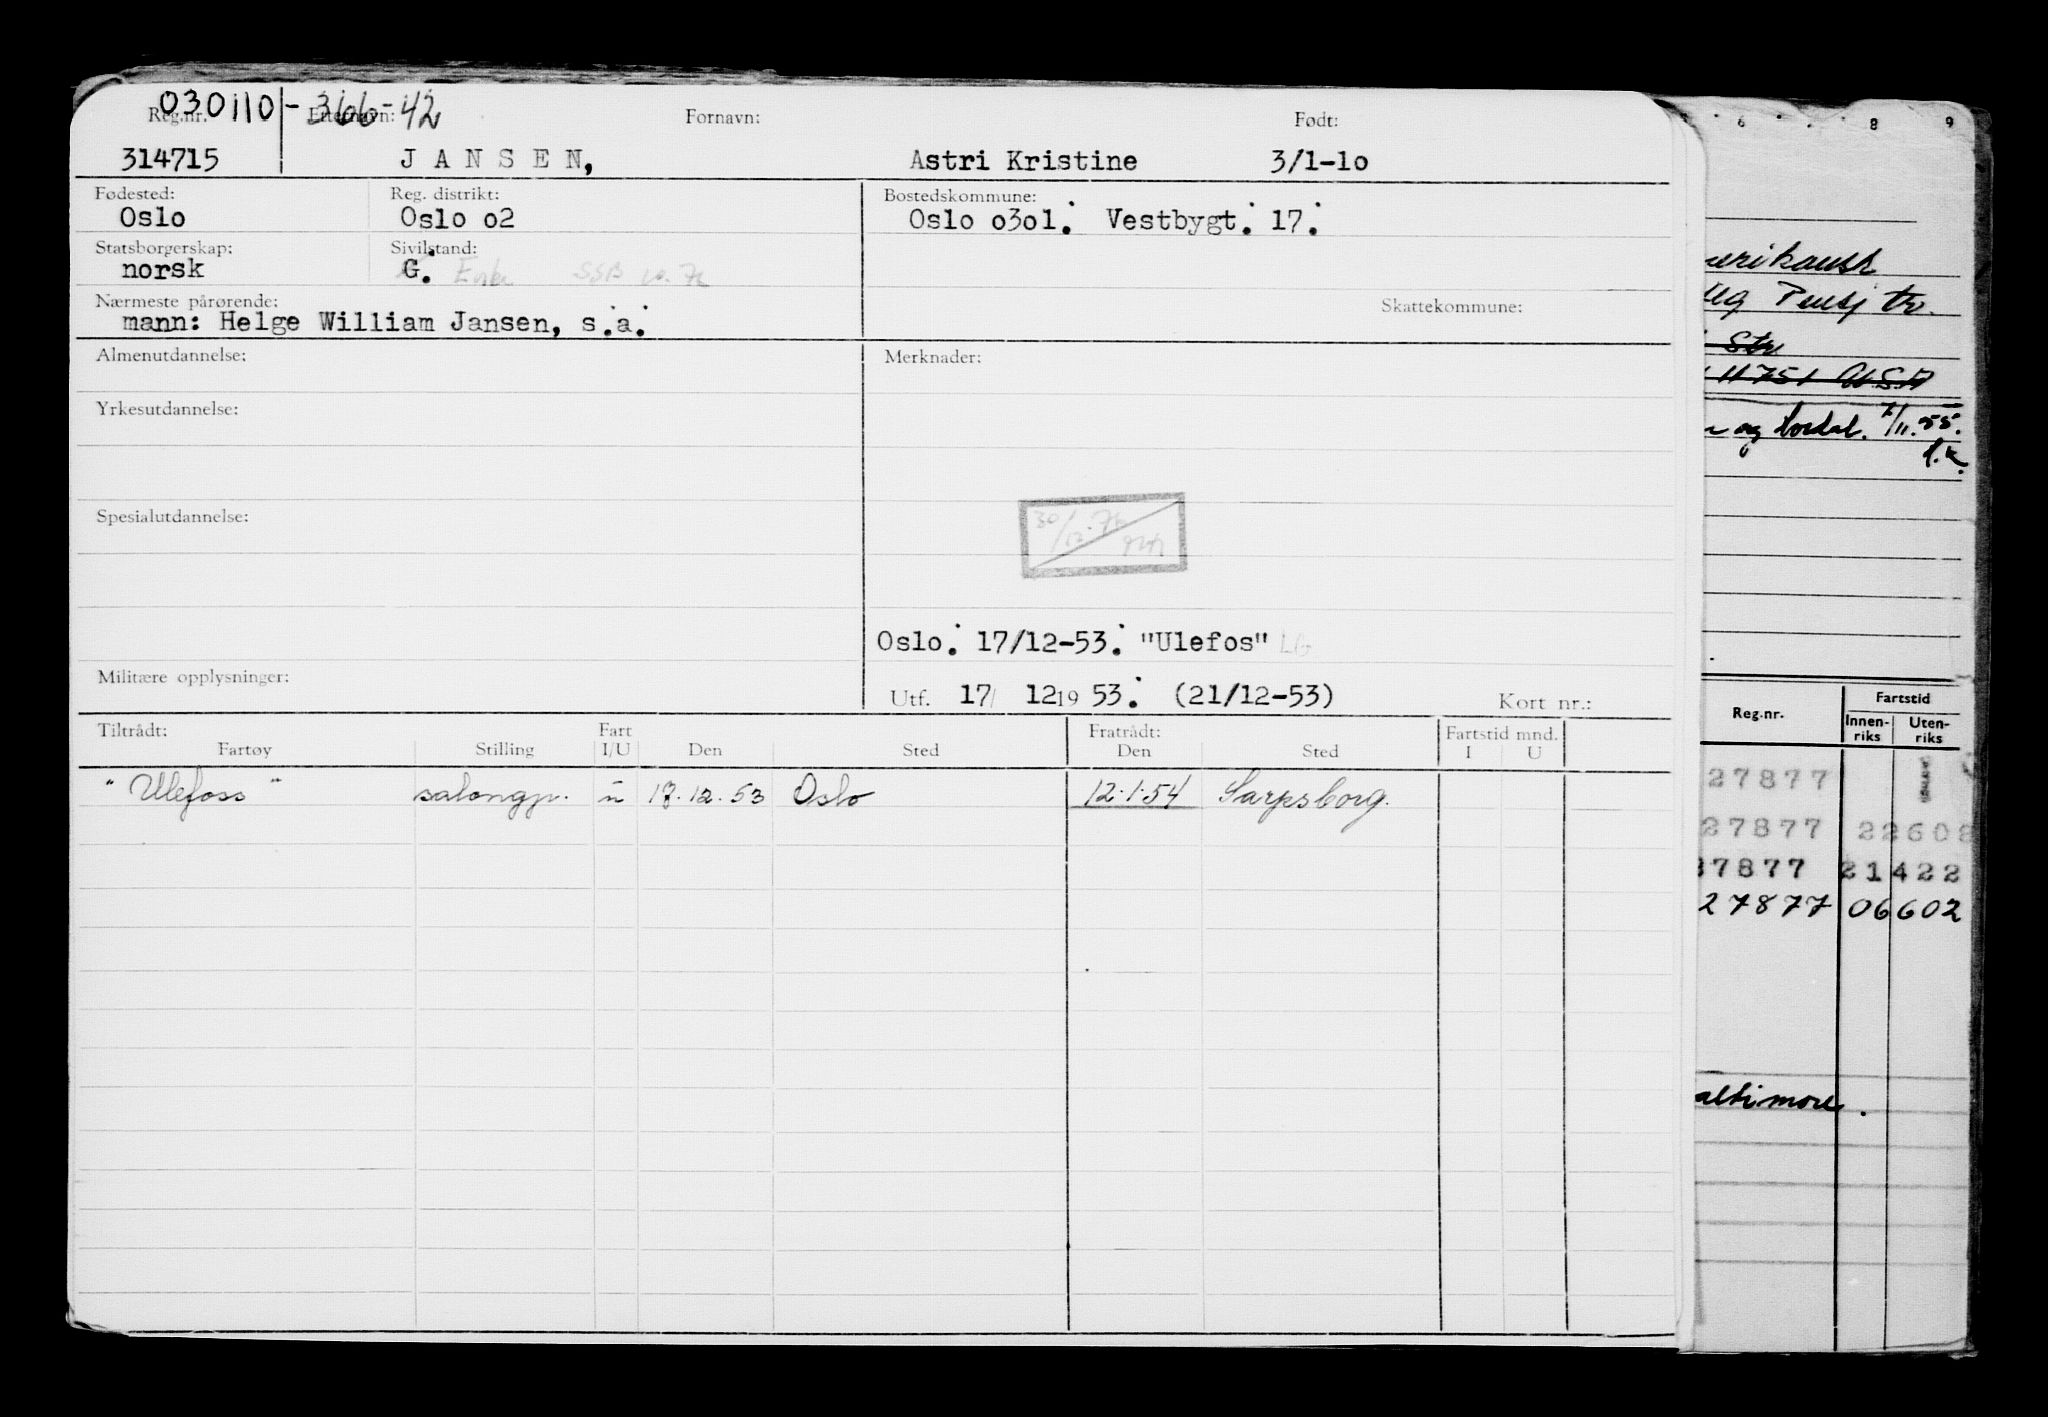 030110-36642
Reg.nr. Etternavn: Fornavn: Født:
314715 JANSEN, Astri Kristine 3/1-1o
Fødested: Reg. distrikt: Bostedskommune:
Oslo Oslo o2 Oslo o3o1. Vestbygt. 17.
Statsborgerskap: Sivilstand:
norsk G. Enke SSB
Nærmeste pårørende: Skattekommune:
mann: Helge William Jansen, s.a.
Almenutdannelse: Merknader:
Yrkesutdannelse:
Spesialutdannelse:
30/12.76
Oslo. 17/12-53. "Ulefos" LG
Militære opplysninger:
Utf. 17/ 12 19 53. (21/12-53) Kort nr.:
Tiltrådt: Fratrådt: Fartstid mnd.
Fartøy Stilling Fart I/U Den Sted Den Sted I U
"Ulefoss" salongp. u 17.12.53 Oslo 12.1.54 Sarpsborg.
6 8 9
merikansk
Pensj tr.
Str
11751 U.S.A
og lordal. 7/11.55.
Reg.nr. Fartstid
Innen-riks Uten-riks
27877
27877 22602
37877 21422
27877 06602
altimore.